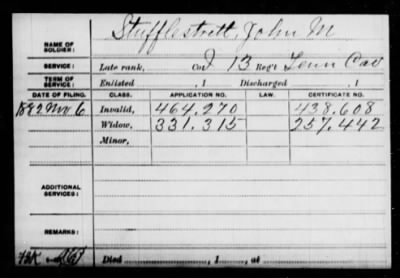 Stufflestrett, John M
NAME OF SOLDIER:
SERVICE: Late rank, Co. I 13 Reg't Tenn Cav
TERM OF SERVICE: Enlisted , 1 Discharged , 1
DATE OF FILING. CLASS. APPLICATION NO. LAW. CERTIFICATE NO.
1882 Nov 6 Invalid, 464.270 438.608
Widow, 331.315 257.442
Minor,
ADDITIONAL SERVICES:
REMARKS:
Died , 1 , at